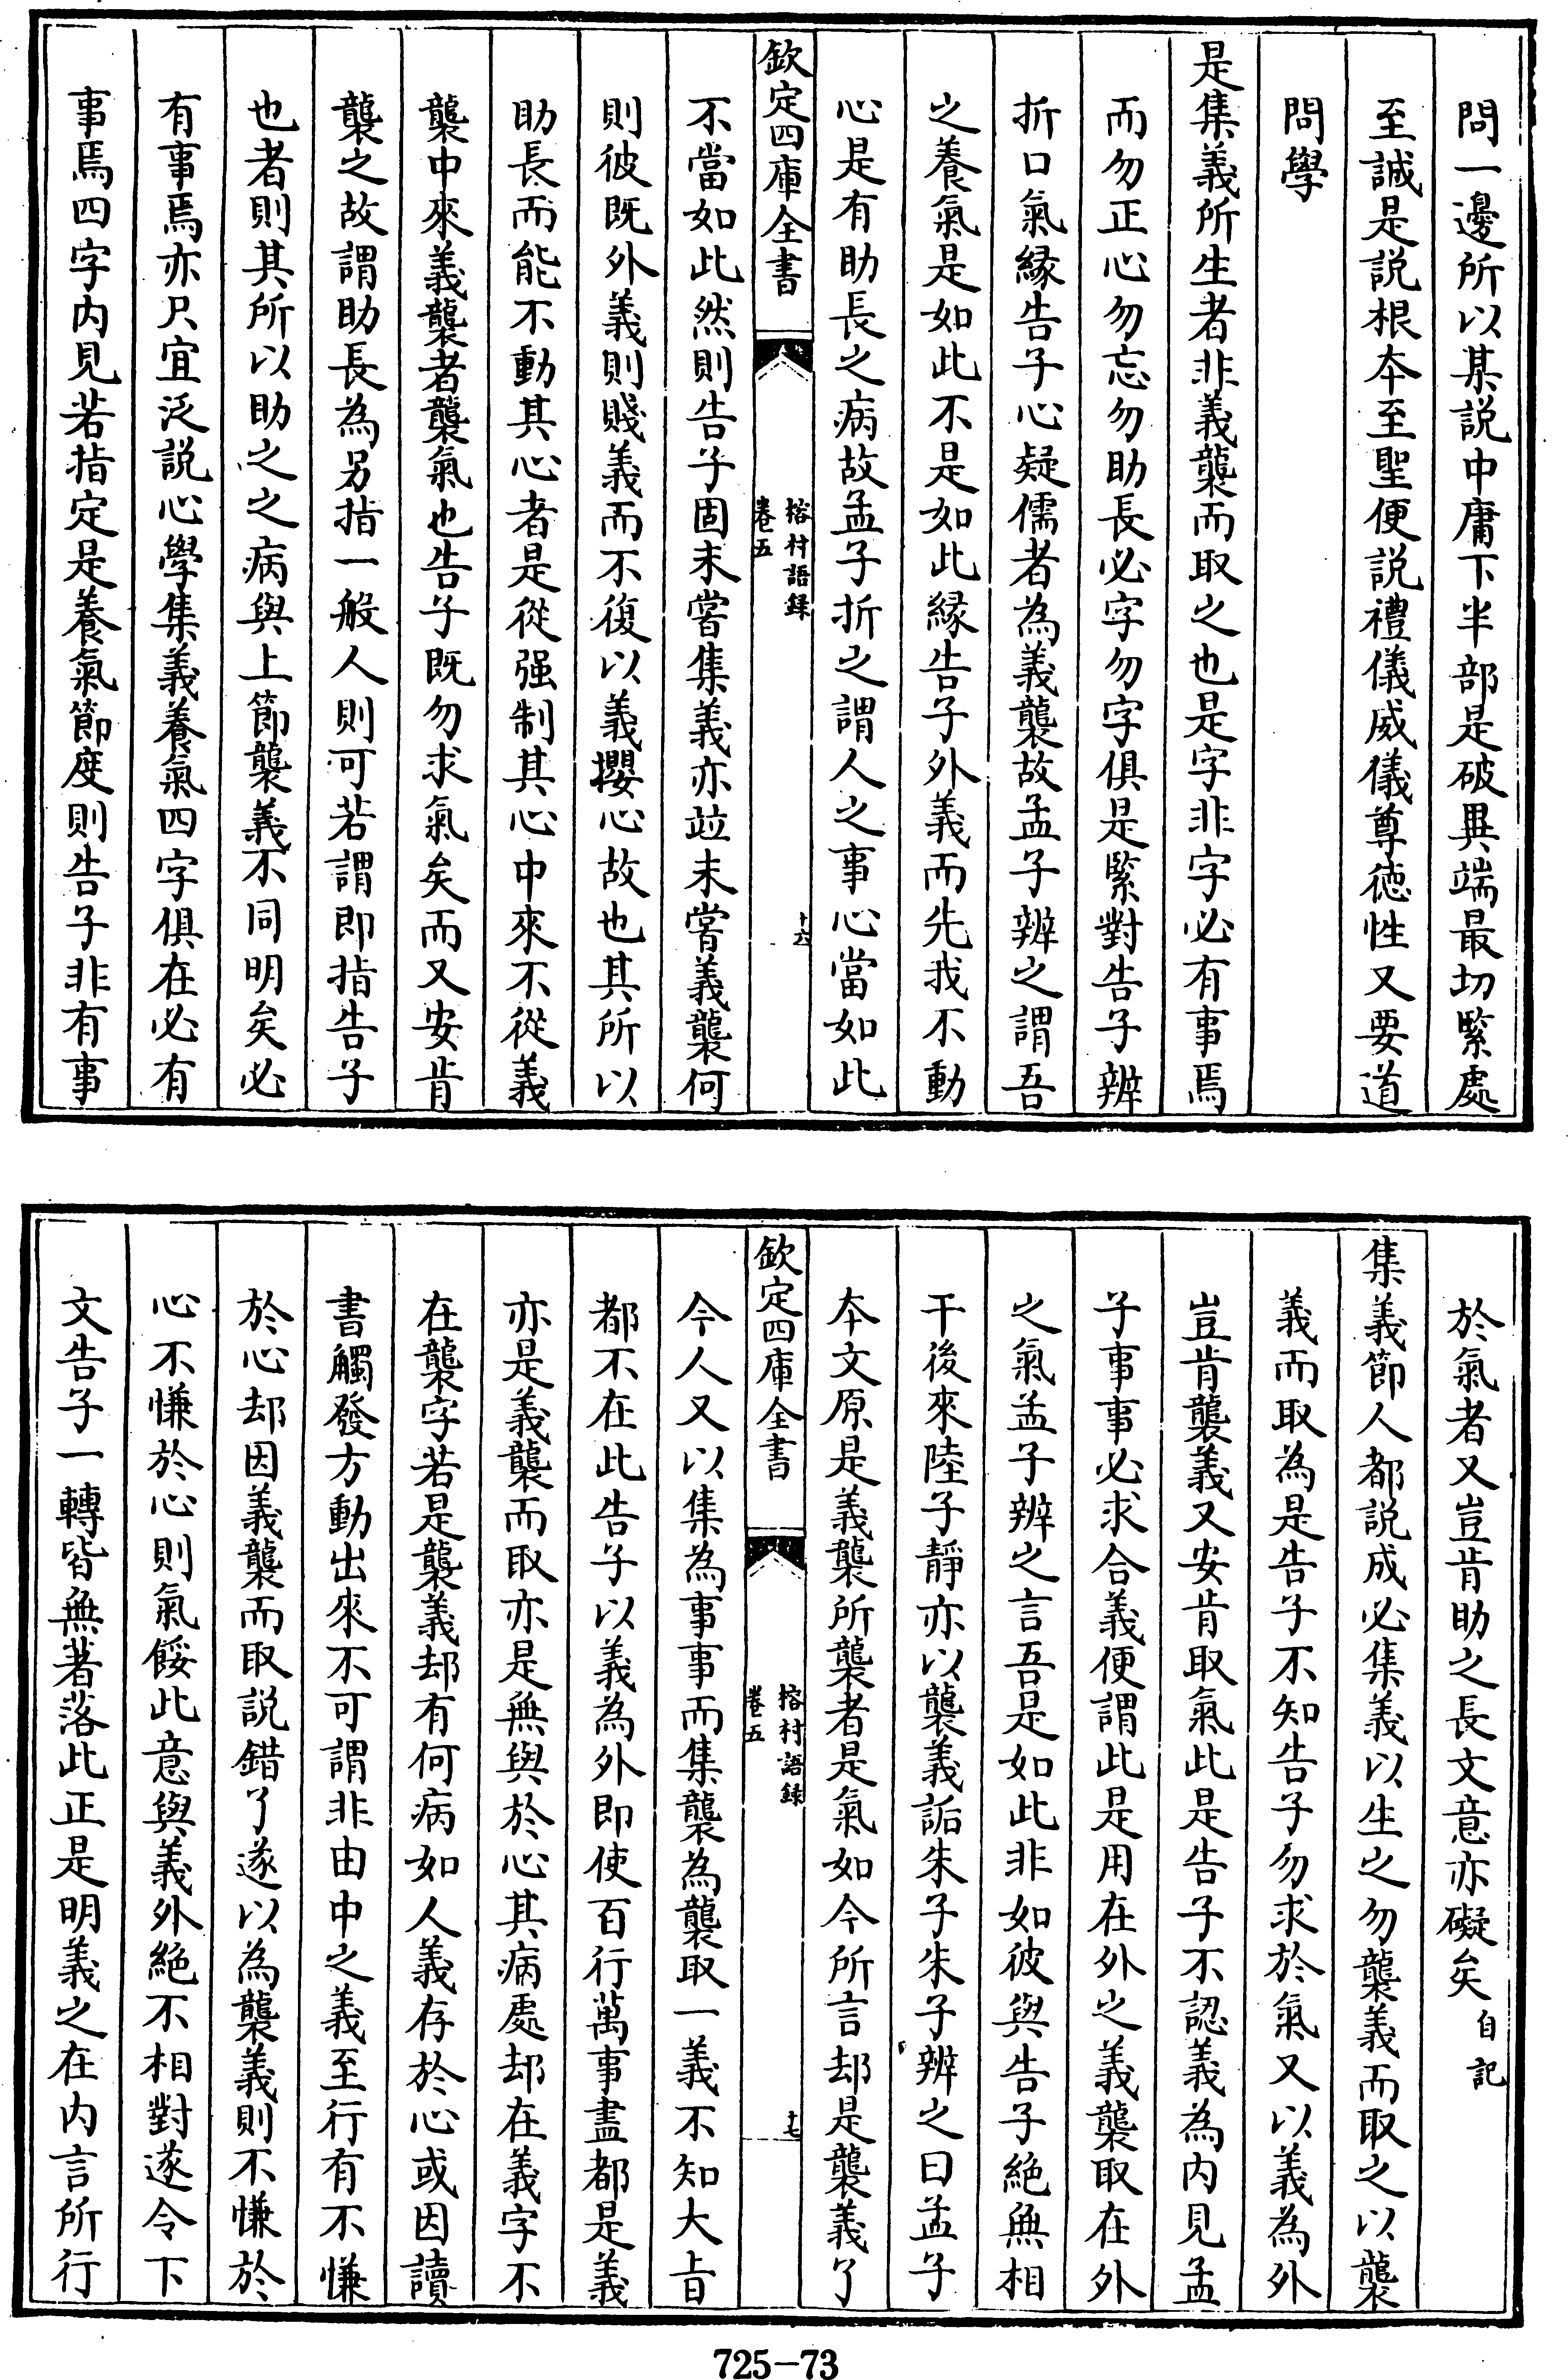 問一邊所以某説中庸下半部是破異端最切緊處
至誠是説根本至聖便説禮儀威儀尊徳性又要道
問學
是集義所生者非義襲而取之也是字非字必有事焉
而勿正心勿忘勿助長必字勿字俱是緊對告子辨
折口氣縁告子心疑儒者為義襲故孟子辨之謂吾
之養氣是如此不是如此縁告子外義而先我不動
心是有助長之病故孟子折之謂人之事心當如此
欽定四庫全書
榕村語録
卷五
十六
不當如此然則告子固未嘗集義亦竝未嘗義襲何
則彼既外義則賤義而不復以義攖心故也其所以
助長而能不動其心者是從强制其心中來不從義
襲中來義襲者襲氣也告子既勿求氣矣而又安肯
襲之故謂助長為另指一般人則可若謂即指告子
也者則其所以助之之病與上節襲義不同明矣必
有事焉亦只宜泛説心學集義養氣四字俱在必有
事焉四字内見若指定是養氣節度則告子非有事
於氣者又豈肯助之長文意亦礙矣自記
集義節人都説成必集義以生之勿襲義而取之以襲
義而取為是告子不知告子勿求於氣又以義為外
豈肯襲義又安肯取氣此是告子不認義為内見孟
子事事必求合義便謂此是用在外之義襲取在外
之氣孟子辨之言吾是如此非如彼與告子絶無相
干後來陸子靜亦以襲義詬朱子朱子辨之曰孟子
本文原是義襲所襲者是氣如今所言却是襲義了
欽定四庫全書
榕村語録
卷五
十七
今人又以集為事事而集襲為襲取一義不知大旨
都不在此告子以義為外即使百行萬事盡都是義
亦是義襲而取亦是無與於心其病處却在義字不
在襲字若是襲義却有何病如人義存於心或因讀
書觸發方動出來不可謂非由中之義至行有不慊
於心却因義襲而取説錯了遂以為襲義則不慊於
心不慊於心則氣餒此意與義外絶不相對遂令下
文告子一轉皆無著落此正是明義之在内言所行
725-73